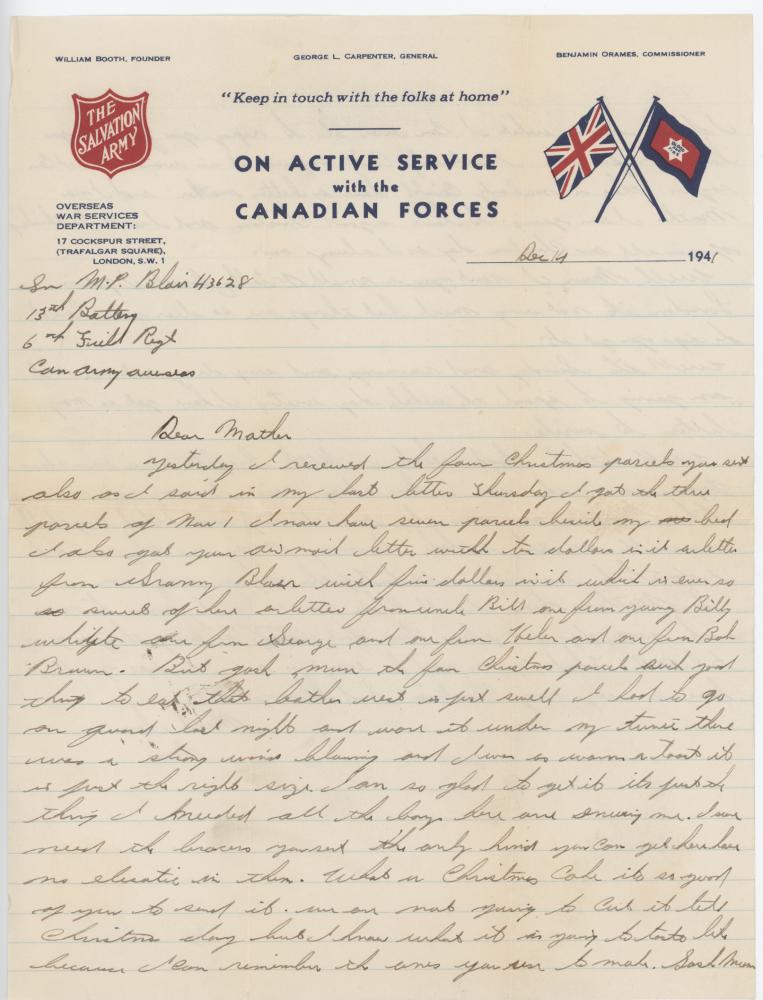 WILLIAM BOOTH, FOUNDER
GEORGE L. CARPENTER, GENERAL
BENJAMIN ORAMES, COMMISSIONER
THE
SALVATION
ARMY
"Keep in touch with the folks at home"
ON ACTIVE SERVICE
with the
CANADIAN FORCES
OVERSEAS
WAR SERVICES
DEPARTMENT:
17 COCKSPUR STREET,
(TRAFALGAR SQUARE),
LONDON, S.W. 1
Dec 14 1941
Gnr M.P. Blair H3628
13th Battery
6th Field Regt
Can army overseas
Dear Mother
yesterday I received the four Christmas parcels you sent
also as I said in my last letter Thursday I got the three
parcels of Nov 1 I now have seven parcels beside my bed
I also got your air mail letter with ten dollars in it a letter
from Granny Blair with five dollars in it which is ever so
sweet of her a letter from uncle Bill one from young Billy
one from George and one from Helen and one from Bob
Brown. But gosh mum the four Christmas parcels such good
thing to eat that leather vest is just swell I had to go
on guard last night and wore it under my tunic there
was a strong wind blowing and I was as warm as toast it
is just the right size I am so glad to get it its just the
thing I needed all the boys here are envying me. I sure
need the braces you sent the only kind you can get here have
no elastic in them. What a Christmas Cake its so good
of you to send it. we are not going to cut it till
Christmas day but I know what it is going to taste like
because I can remember the ones you use to make. Gosh Mum